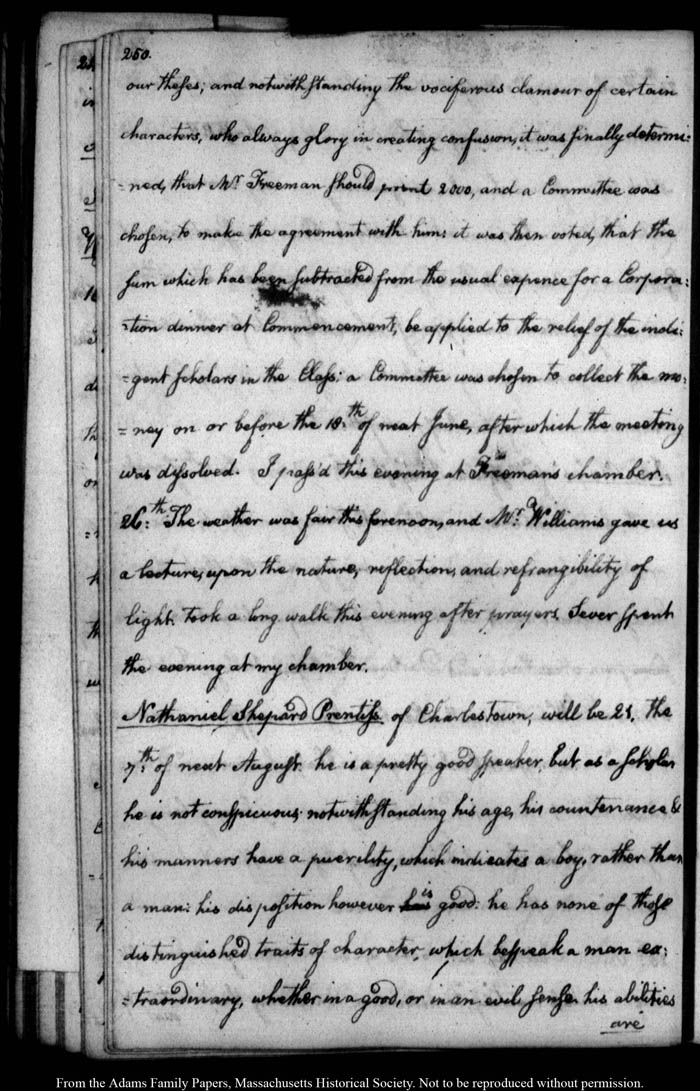 250.
our theses; and notwithstanding the vociferous clamour of certain
characters, who always glory in creating confusion, it was finally determi:
=ned, that Mr. Freeman should print 2000, and a Committee was
chosen, to make the agreement with him: it was then voted, that the
sum which has been subtracted from the usual expence for a Corpora:
=tion dinner at Commencement, be applied to the relief of the indi:
=gent scholars in the Class: a Committee was chosen to collect the mo:
=ney on or before the 18th. of next June, after which the meeting
was dissolved. I pass'd this evening at Freeman's chamber.
26th. The weather was fair this forenoon, and Mr. Williams gave us
a lecture, upon the nature, reflection, and refrangibility of
light. Took a long walk this evening after prayers. Sever spent
the evening at my chamber.
Nathaniel Shepard Prentiss of Charlestown, will be 21. the
7th. of next August. he is a pretty good speaker, but as a scholar
he is not conspicuous. notwithstanding his age, his countenance &
his manners have a puerility, which indicates a boy, rather than
a man: his disposition however is good: he has none of those
distinguished traits of character, which bespeak a man ex:
=traordinary, whether in a good, or in an evil sense. his abilities
are
From the Adams Family Papers, Massachusetts Historical Society. Not to be reproduced without permission.